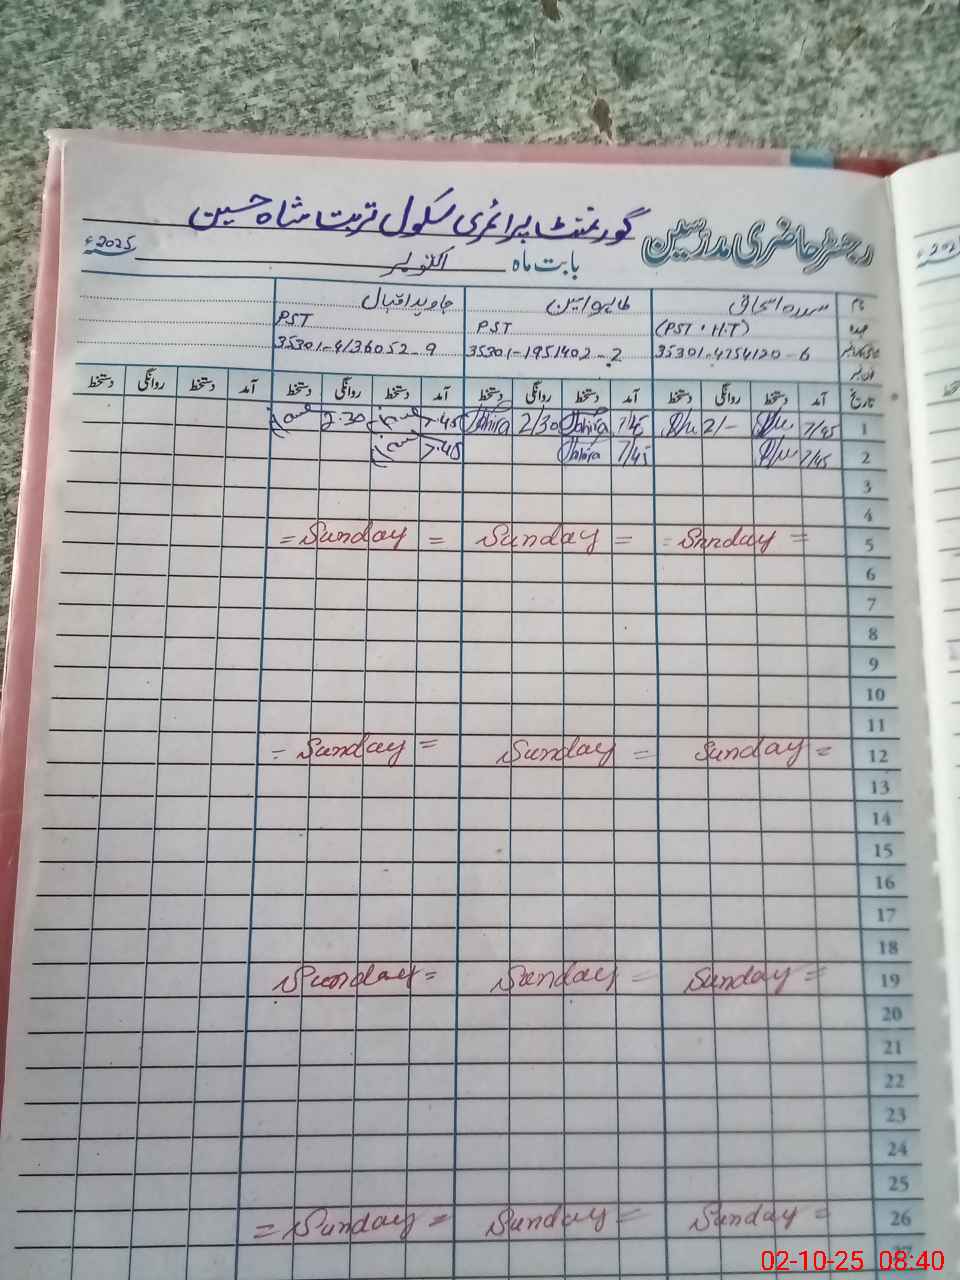 رجسٹر حاضری مدرسین گورنمنٹ پرائمری سکول تربت شاہ حسین
بابت ماہ اکتوبر 2025ء
نام سدرہ اسحاق طاہرہ امین جاوید اقبال
عہدہ (PST . H.T) PST PST
35301-4754120-6 35301-1951402-2 35301-4136052-9
تاریخ آمد دستخط روانگی دستخط آمد دستخط روانگی دستخط آمد دستخط روانگی دستخط آمد دستخط روانگی دستخط
1 7/45 2/- 7/45 Tahira 2/30 Tahira 7.45 2.30
2 7/45 7/45 Tahira 7.45
3
4
5 = Sunday = Sunday = = Sunday =
6
7
8
9
10
11
12 = Sunday = Sunday = Sunday =
13
14
15
16
17
18
19 Sunday = Sunday = Sunday =
20
21
22
23
24
25
26 = Sunday = Sunday = Sunday =
27
02-10-25 08:40